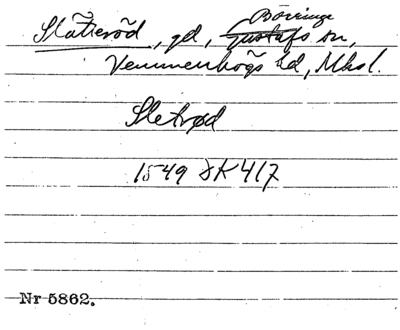 Börringe
Slätteröd, gd, Gustafs sn,
Vemmenhögs hd, Mhsl.
Sletrød
1549 DK417
Nr 5862.